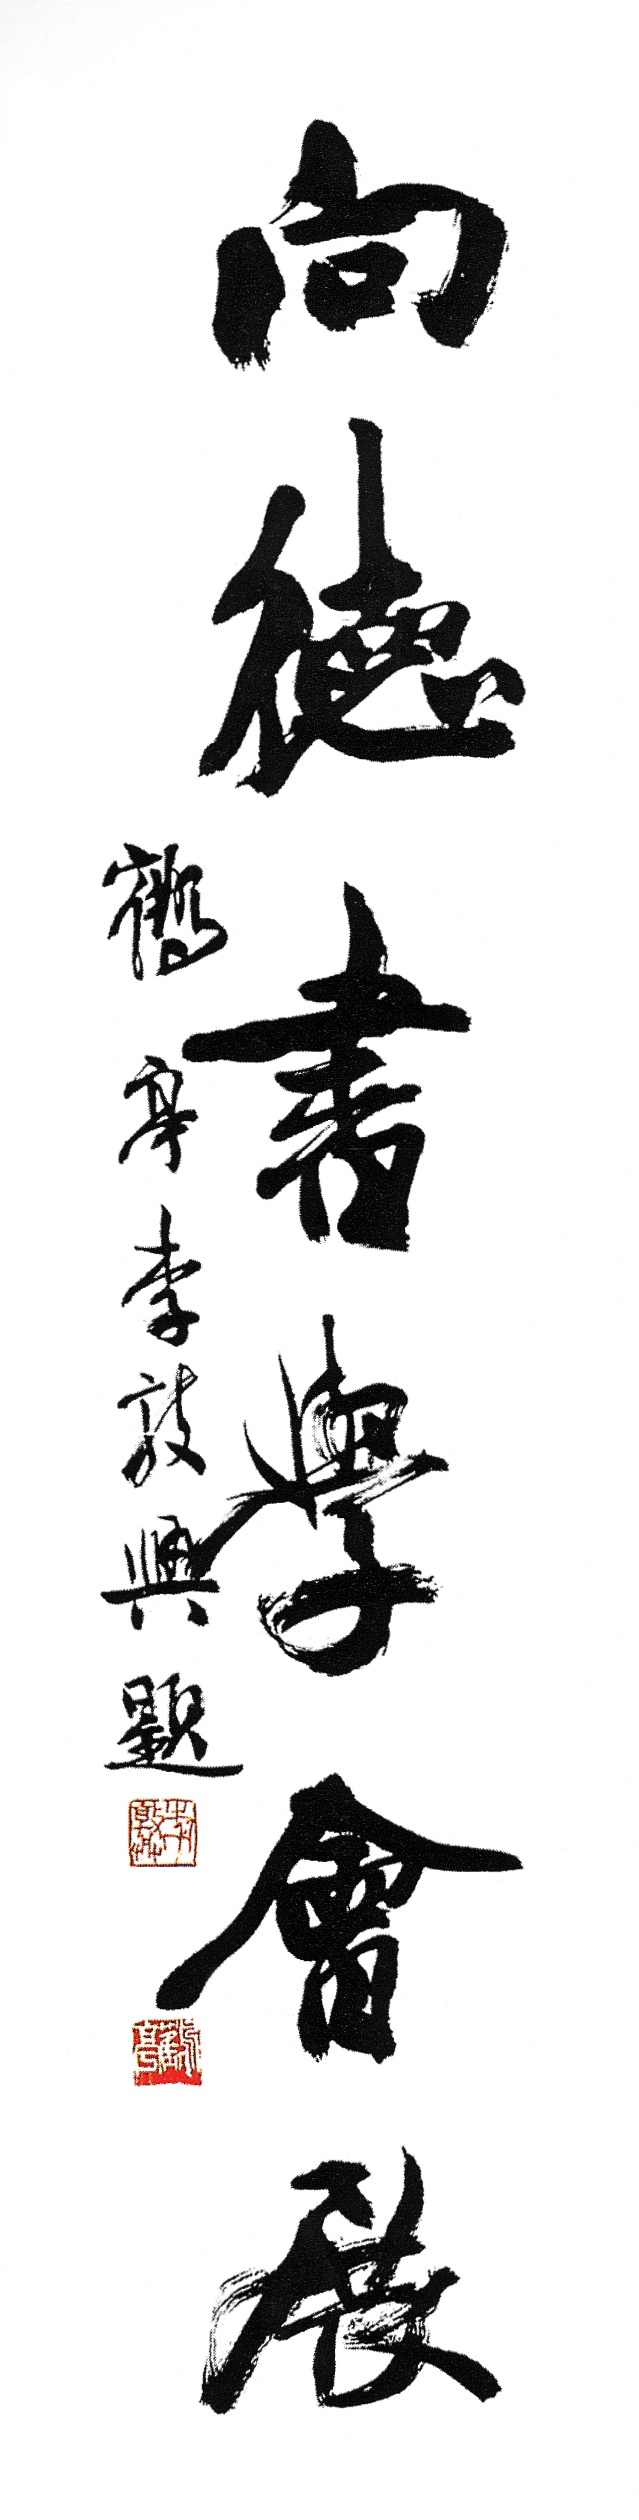 向德書學會展
鶴亭李敦興題